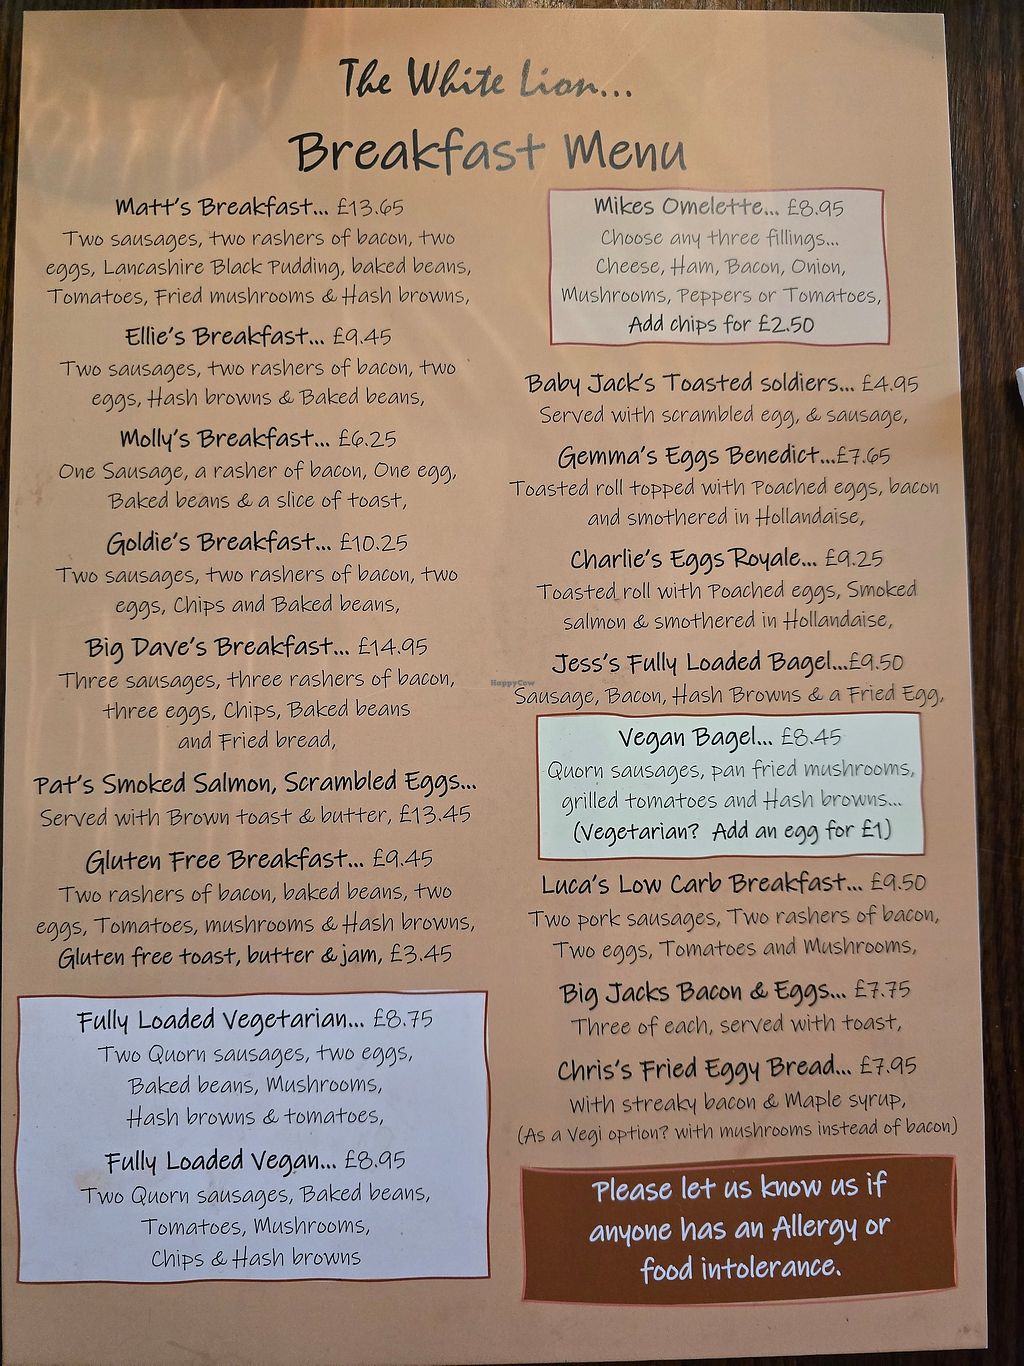 The White Lion...
Breakfast Menu
Matt's Breakfast... £13.65
Two sausages, two rashers of bacon, two
eggs, Lancashire Black Pudding, baked beans,
Tomatoes, Fried mushrooms & Hash browns,
Ellie's Breakfast... £9.45
Two sausages, two rashers of bacon, two
eggs, Hash browns & Baked beans,
Molly's Breakfast... £6.25
One Sausage, a rasher of bacon, One egg,
Baked beans & a slice of toast,
Goldie's Breakfast... £10.25
Two sausages, two rashers of bacon, two
eggs, Chips and Baked beans,
Big Dave's Breakfast... £14.95
Three sausages, three rashers of bacon,
three eggs, Chips, Baked beans
and Fried bread,
Pat's Smoked Salmon, Scrambled Eggs...
Served with Brown toast & butter, £13.45
Gluten Free Breakfast... £9.45
Two rashers of bacon, baked beans, two
eggs, Tomatoes, mushrooms & Hash browns,
Gluten free toast, butter & jam, £3.45
Fully Loaded Vegetarian... £8.75
Two Quorn sausages, two eggs,
Baked beans, Mushrooms,
Hash browns & tomatoes,
Fully Loaded Vegan... £8.95
Two Quorn sausages, Baked beans,
Tomatoes, Mushrooms,
Chips & Hash browns
Mikes Omelette... £8.95
Choose any three fillings...
Cheese, Ham, Bacon, Onion,
Mushrooms, Peppers or Tomatoes,
Add chips for £2.50
Baby Jack's Toasted soldiers... £4.95
Served with scrambled egg, & sausage,
Gemma's Eggs Benedict...£7.65
Toasted roll topped with Poached eggs, bacon
and smothered in Hollandaise,
Charlie's Eggs Royale... £9.25
Toasted roll with Poached eggs, Smoked
salmon & smothered in Hollandaise,
Jess's Fully Loaded Bagel...£9.50
HappyCow
Sausage, Bacon, Hash Browns & a Fried Egg,
Vegan Bagel... £8.45
Quorn sausages, pan fried mushrooms,
grilled tomatoes and Hash browns...
(Vegetarian? Add an egg for £1)
Luca's Low Carb Breakfast... £9.50
Two pork sausages, Two rashers of bacon,
Two eggs, Tomatoes and Mushrooms,
Big Jacks Bacon & Eggs... £7.75
Three of each, served with toast,
Chris's Fried Eggy Bread... £7.95
with streaky bacon & Maple syrup,
(As a Vegi option? with mushrooms instead of bacon)
Please let us know us if
anyone has an Allergy or
food intolerance.